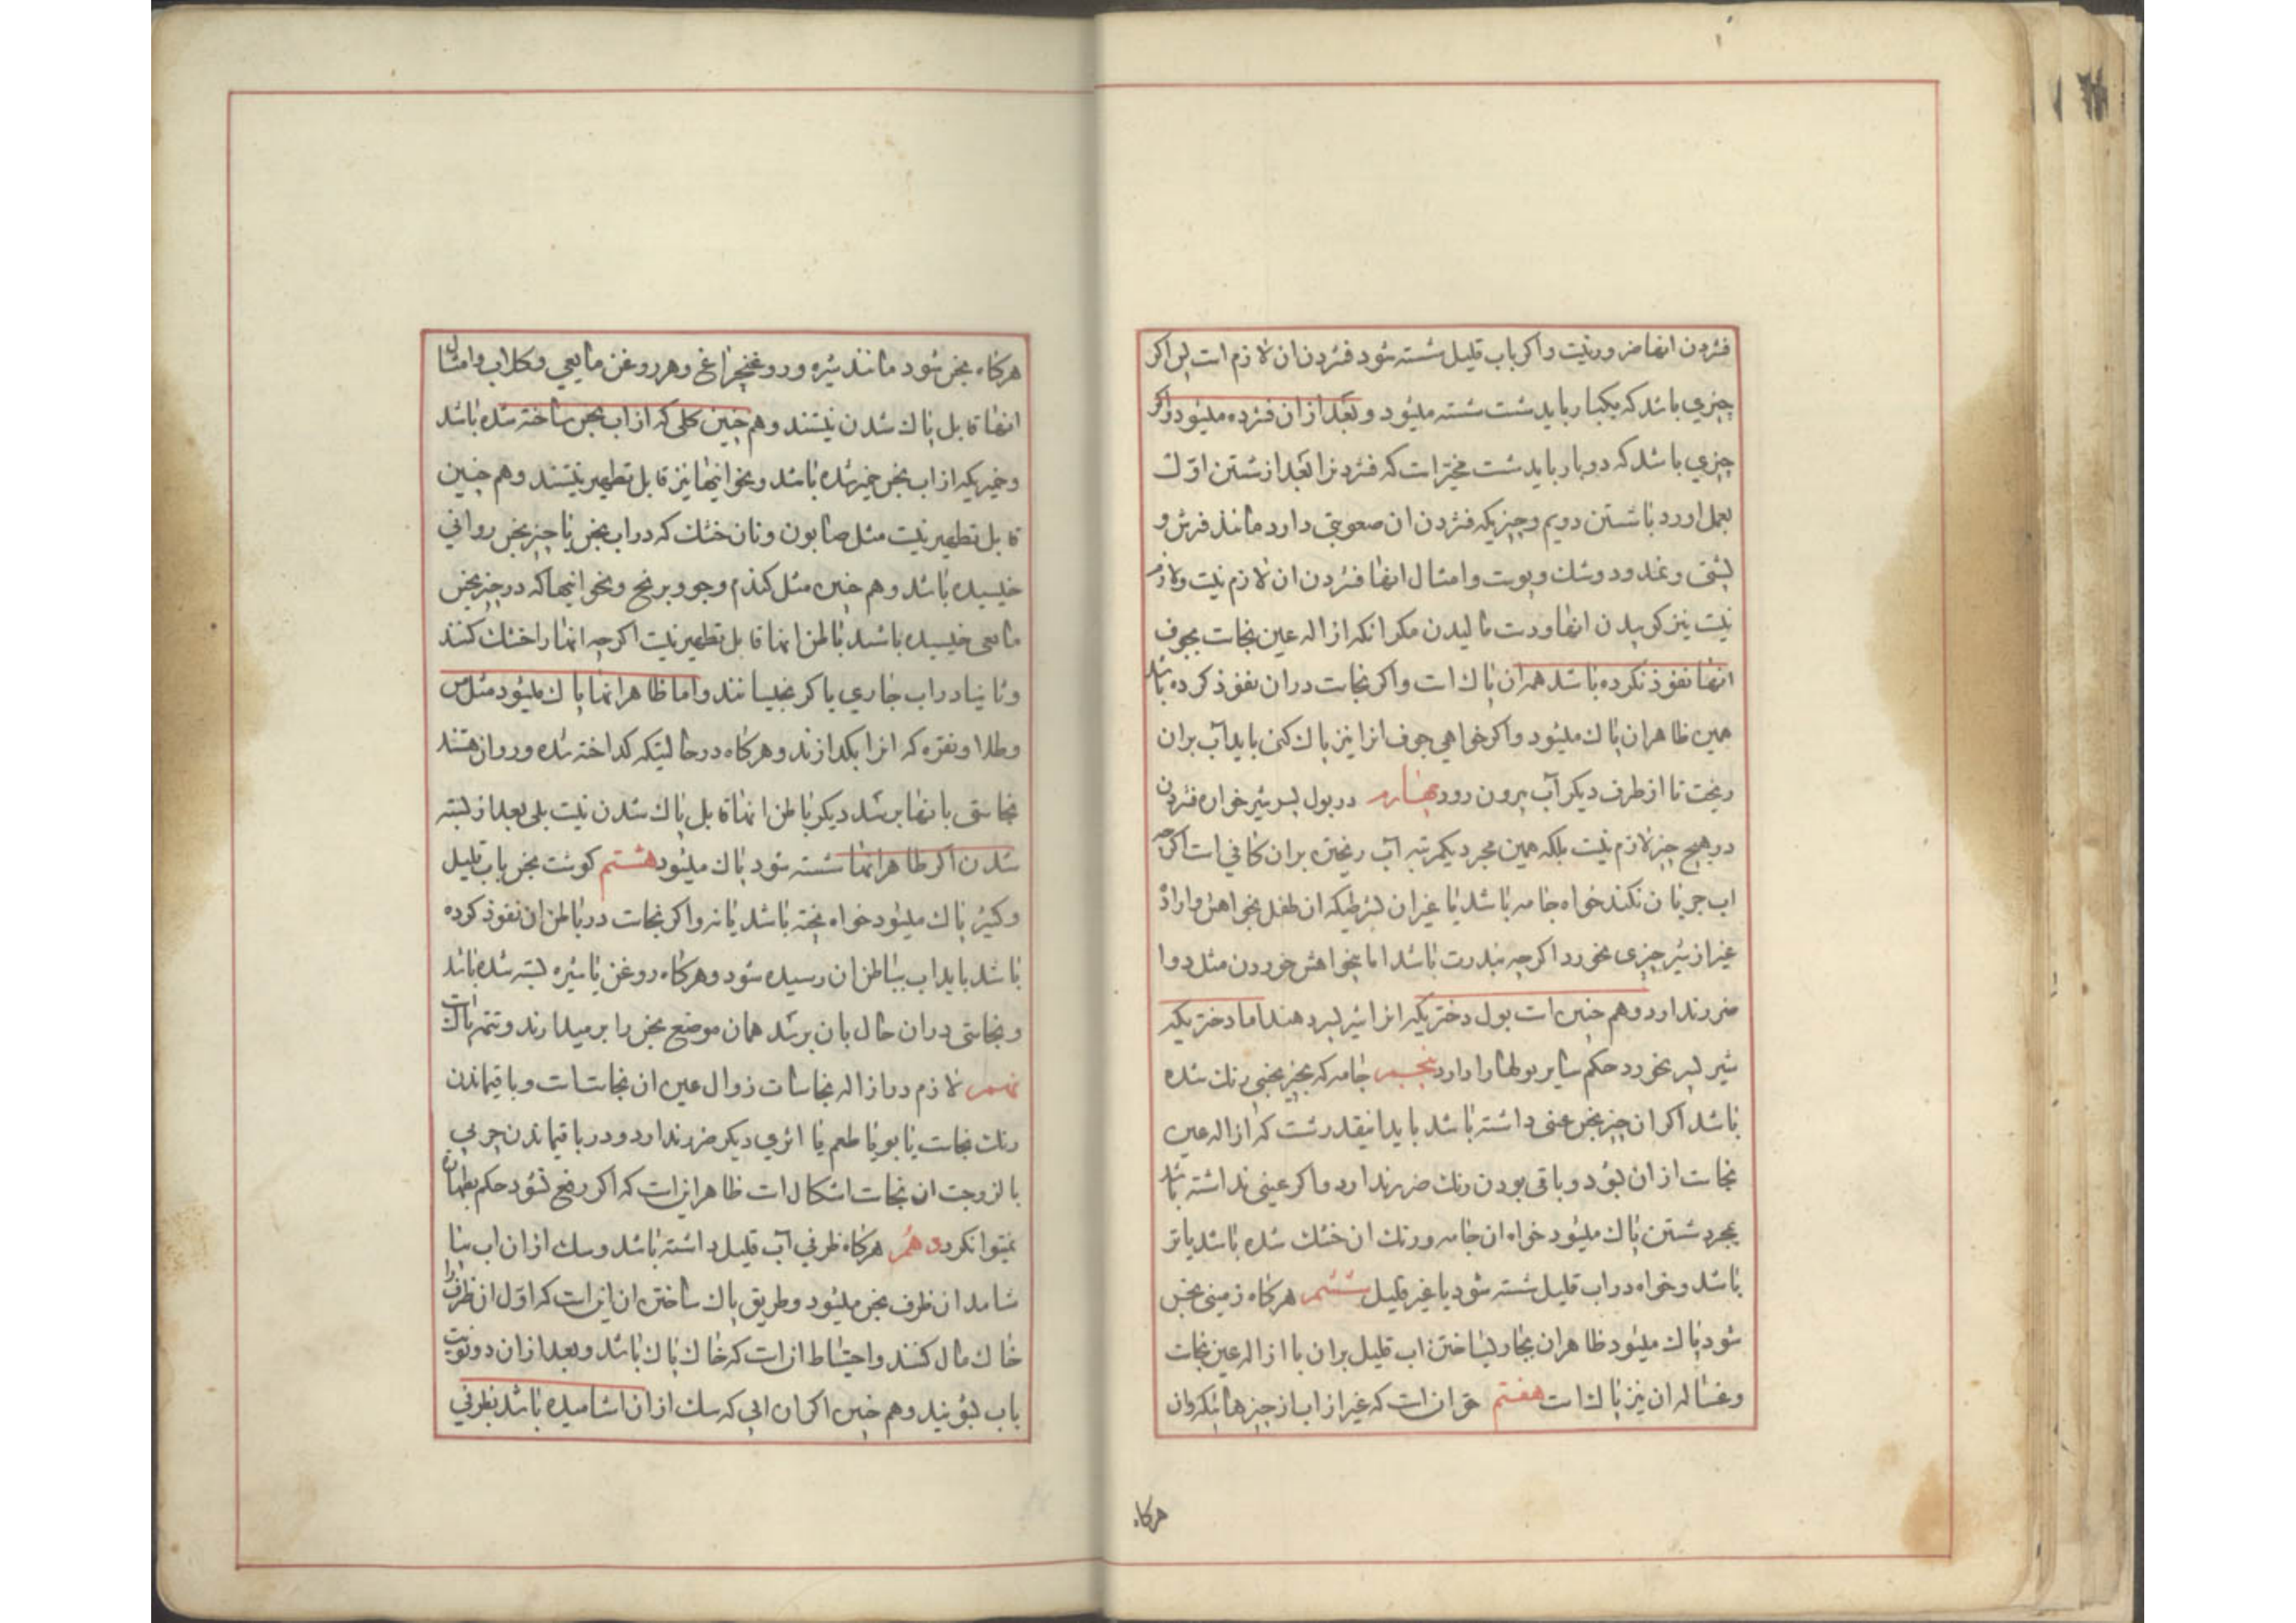 فشردن انها ضرور نیست و اکر باب قلیل شسته شود فشردن ان لازم است پس اکر
چیزی باشد که یکبار باید شست شسته میشود و بعد از ان فشرده میشود و اکر
چیزی باشد که دو بار باید شست مخیر است که فشردن را بعد از شستن اول
بعمل اورد یا شستن دویم و چیزیکه فشردن ان صعوبتی دارد مانند فرش و
و نمد و دوشک و پوست و امثال انها فشردن ان لازم نیست و لازم
نیست نیز کوبیدن انها و دست مالیدن مکر انکه ازاله عین نجاست بجوف
انها نفوذ نکرده باشد همه ان پاک است و اکر نجاست در ان نفوذ کرده باشد
همین ظاهر ان پاک میشود و اکر خواهی جوف انرا نیز پاک کنی باید آب بر ان
ریخت تا از طرف دیکر آب بیرون رود چهارم در بول پسر شیر خواره فشردن
در هیچ چیز لازم نیست بلکه همین مجرد یکمرتبه آب ریختن بر ان کافی است اکرچه
اب جریان نکند خواه جامه باشد یا غیر ان بشرطیکه ان طفل بخواهش و اراده
غیر از شیر چیزی نخورد اکرچه بندرت باشد اما بخواهش خوردن مثل دوا
ضرر ندارد و هم چنین است بول دختریکه انرا شیر پسر دهند اما دختریکه
شیر پسر نخورد حکم سایر بولها را دارد پنجم جامه که بچیز نجسی رنک شده
باشد اکر ان چیز نجس عینی داشته باشد باید انیقدر شست که ازاله عین
نجاست از ان بشود و باقی بودن رنک ضرر ندارد و اکر عینی نداشته باشد
بمجرد شستن پاک میشود خواه ان جامه و رنک ان خشک شده باشد یا تر
باشد و خواه در اب قلیل شسته شود یا غیر قلیل ششم هرکاه زمینی نجس
شود پاک میشود ظاهر ان بجاری ساختن اب قلیل بر ان با ازاله عین نجاست
و غساله ان نیز پاک است هفتم حق ان است که غیر از اب از چیزهائیکه روان
هرکاه
هرکاه نجس شود مانند شیره و روغن چراغ و هر روغن مایعی و کلاب و امثال
انها قابل پاک شدن نیستند و هم چنین کلی که از اب نجس ساخته شده باشد
و خمیریکه از اب نجس خمیر شده باشد و نحو اینها نیز قابل تطهیر نیستند و هم چنین
قابل تطهیر نیست مثل صابون و نان خشک که در اب نجس یا چیز نجس روانی
خیسیده باشد و هم چنین مثل کندم و جو و برنج و نحو اینها که در چیز نجس
مایعی خیسیده باشد باطن انها قابل تطهیر نیست اکرچه انها را خشک کنند
و ثانیا در اب جاری یا کر بخیسانند و اما ظاهر انها پاک میشود مثل مس
و طلا و نقره که انرا بکدازند و هرکاه در حالیتکه کداخته شده و روان هستند
نجاستی بانها برسد دیکر باطن انها قابل پاک شدن نیست بلی بعد از بسته
شدن اکر ظاهر انها شسته شود پاک میشود هشتم کوشت نجس باب قلیل
و کثیر پاک میشود خواه پخته باشد یا نه و اکر نجاست در باطن ان نفوذ کرده
باشد باید اب بباطن ان رسیده شود و هرکاه روغن یا شیره بسته شده باشد
و نجاستی در ان حال بان برسد همان موضع نجس را بر میدارند و تتمه پاک است
نهم لازم در ازاله نجاسات زوال عین ان نجاست است و باقیماندن
رنک نجاست یا بو یا طعم یا اثری دیکر ضرر ندارد و در باقیماندن چربی
با لزوجت ان نجاست اشکال است ظاهر این است که اکر رفع نشود حکم بطهارت
نمیتوان کرد دهم هرکاه ظرفی آب قلیل داشته باشد و سک از ان اب بیا
شامد ان ظرف نجس میشود و طریق پاک ساختن ان این است که اول ان ظرف را
خاک مال کنند و احتیاط ان است که خاک پاک باشد و بعد از ان دو نوبت
باب بشویند و هم چنین اکر ان ابی که سک از ان اشامیده باشد بظرفی